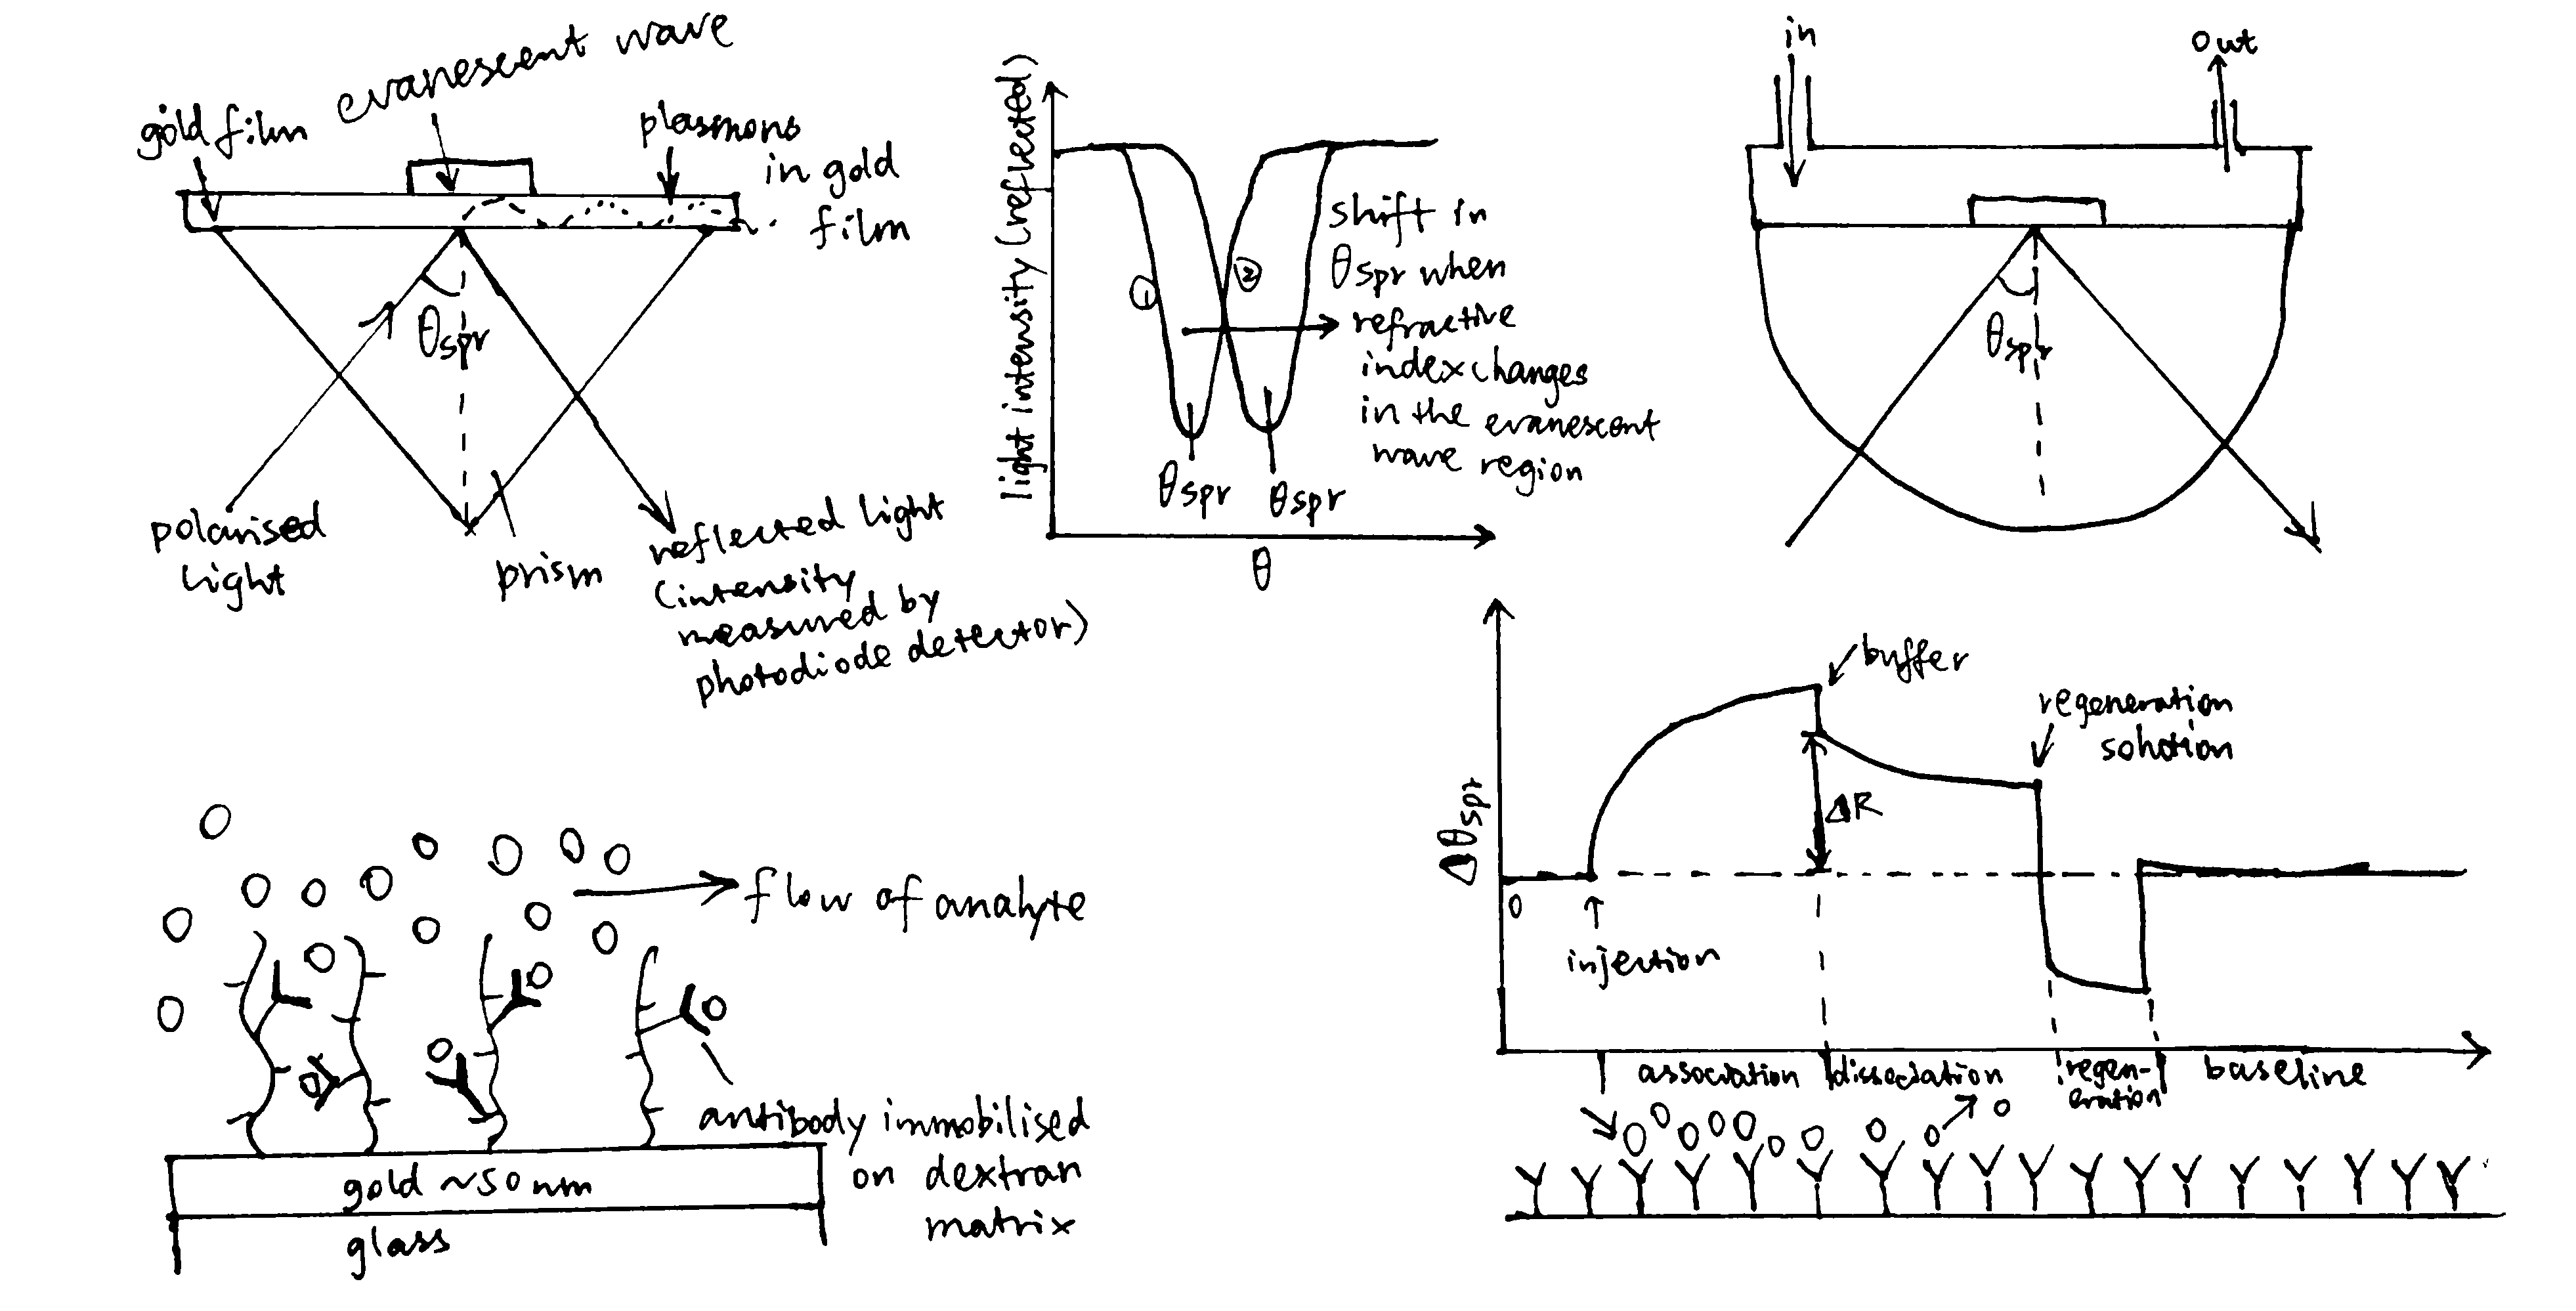 evanescent wave
gold film
plasmons
in gold
film
θspr
polarised
light
prism
reflected light
(intensity
measured by
photodiode detector)
light intensity (reflected)
①
②
shift in
θspr when
refractive
index changes
in the evanescent
wave region
θspr
θspr
θ
in
out
θspr
flow of analyte
antibody immobilised
on dextran
matrix
gold ~50 nm
glass
Δθspr
0
injection
buffer
ΔR
regeneration
solution
association
dissociation
regen-
eration
baseline